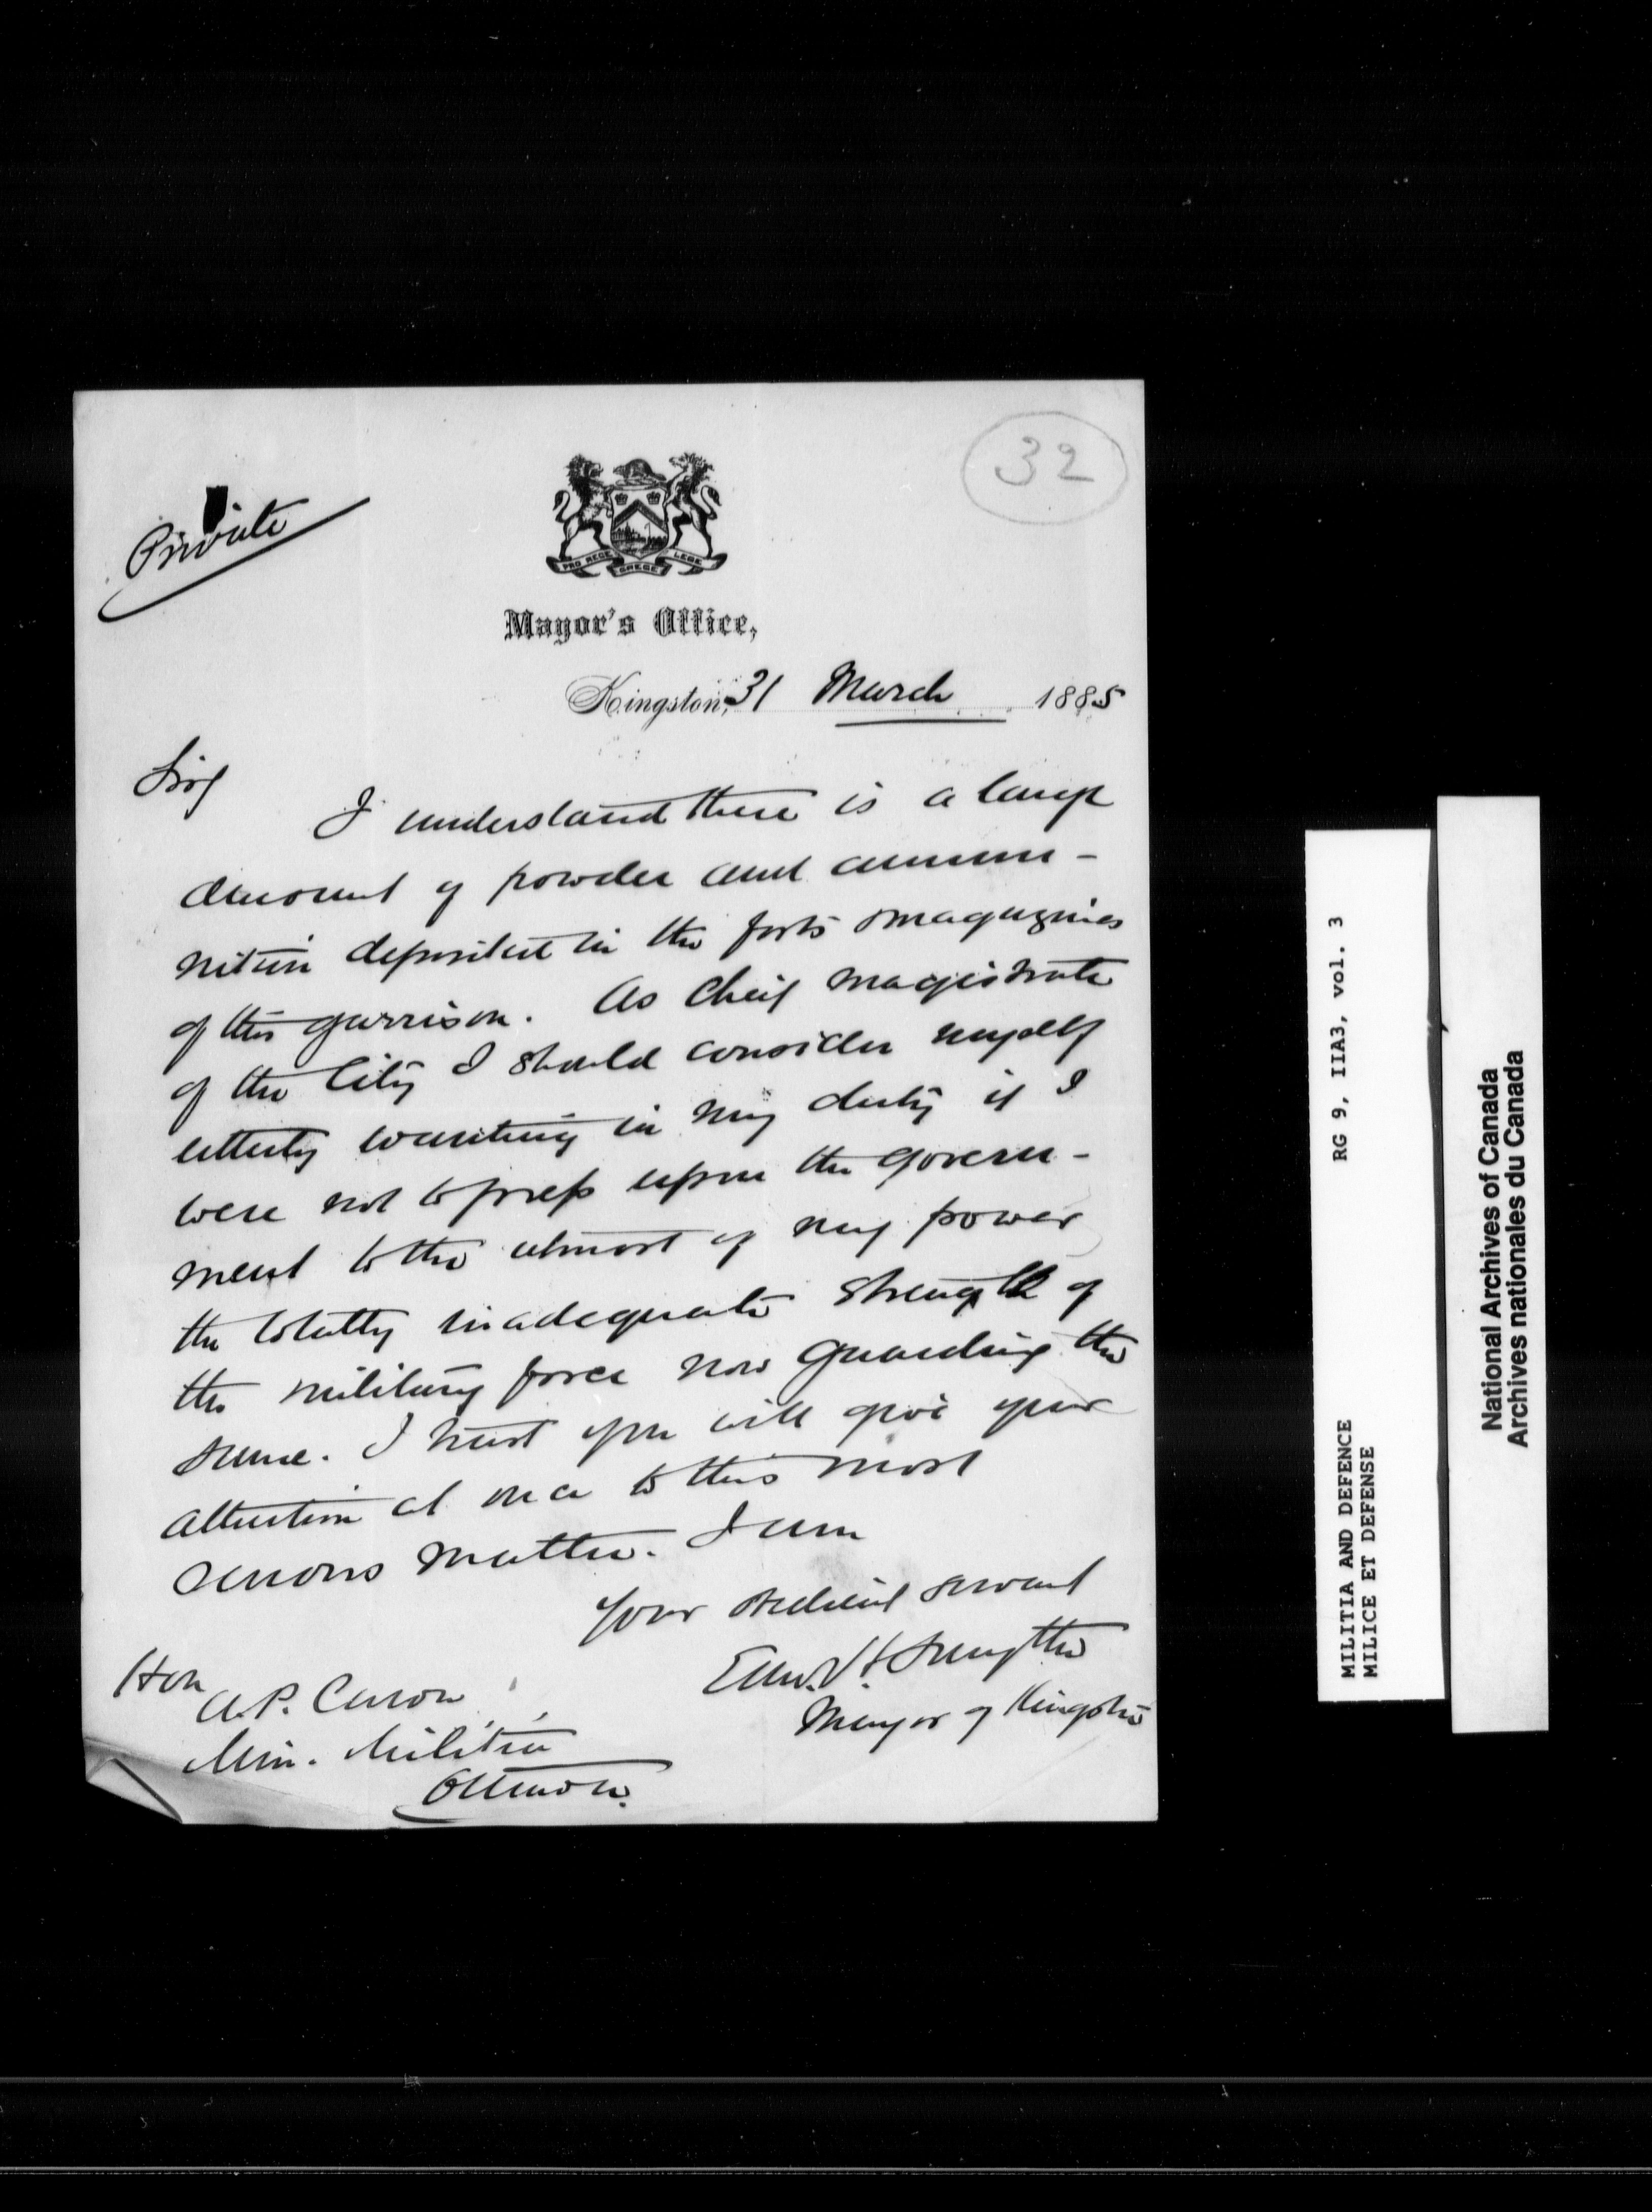 32
Private
PRO REGE GREGE LEGE
Mayor's Office,
Kingston, 31 March 1885
Sir
I understand there is a large
amount of powder and ammu-
nition deposited in the forts & magazines
of this garrison. As Chief magistrate
of the City I should consider myself
utterly wanting in my duty if I
were not to press upon the govern-
ment to the utmost of my power
the totally inadequate strength of
the military force now guarding the
same. I trust you will give your
attention at once to this most
serious matter. I am
Your obedient servant
Edw. H. Smythe
Mayor of Kingston
Hon
A.P. Caron
Min. Militia
Ottawa.
RG 9, IIA3, vol. 3
MILITIA AND DEFENCE
MILICE ET DEFENSE
National Archives of Canada
Archives nationales du Canada